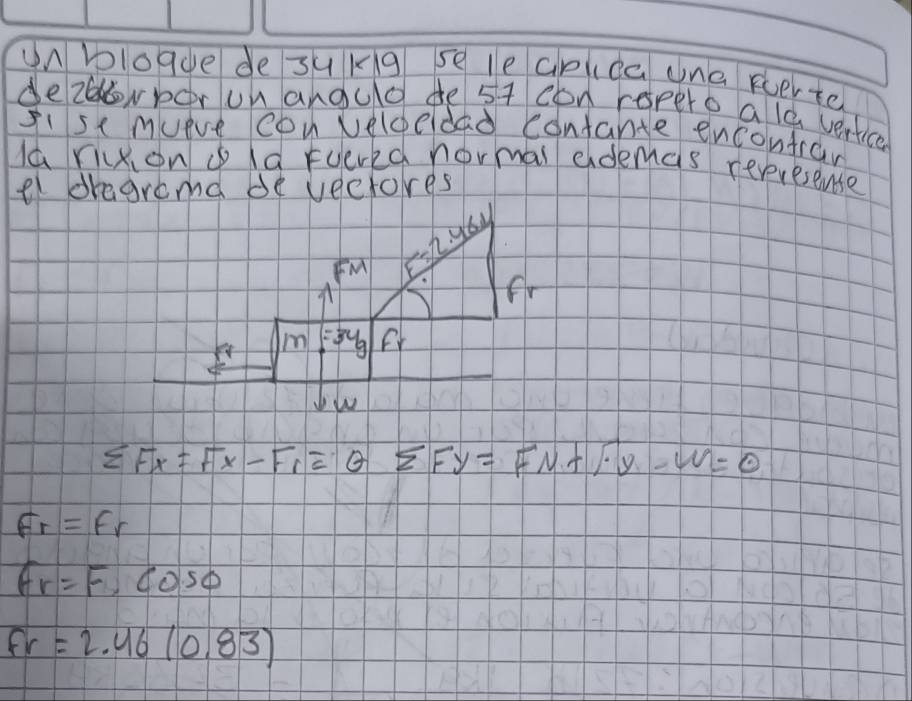 Un bloque de 34 kg se le aplica una Fuerte
de N por un angulo de 57 con ropeto a la vertica
si se mueve con velocidad contante encontrar
la fixion y la Fuerza normal ademas represente
el diagrama de vectores
F=2.46N
FN
Fr
Fr m=34g Fr
W
ΣFx = Fx - Fr = 0 ΣFy = FN + Fy - W = 0
Fr = Fr
Fr = F. COSΦ
Fr = 2.46 (0,83)